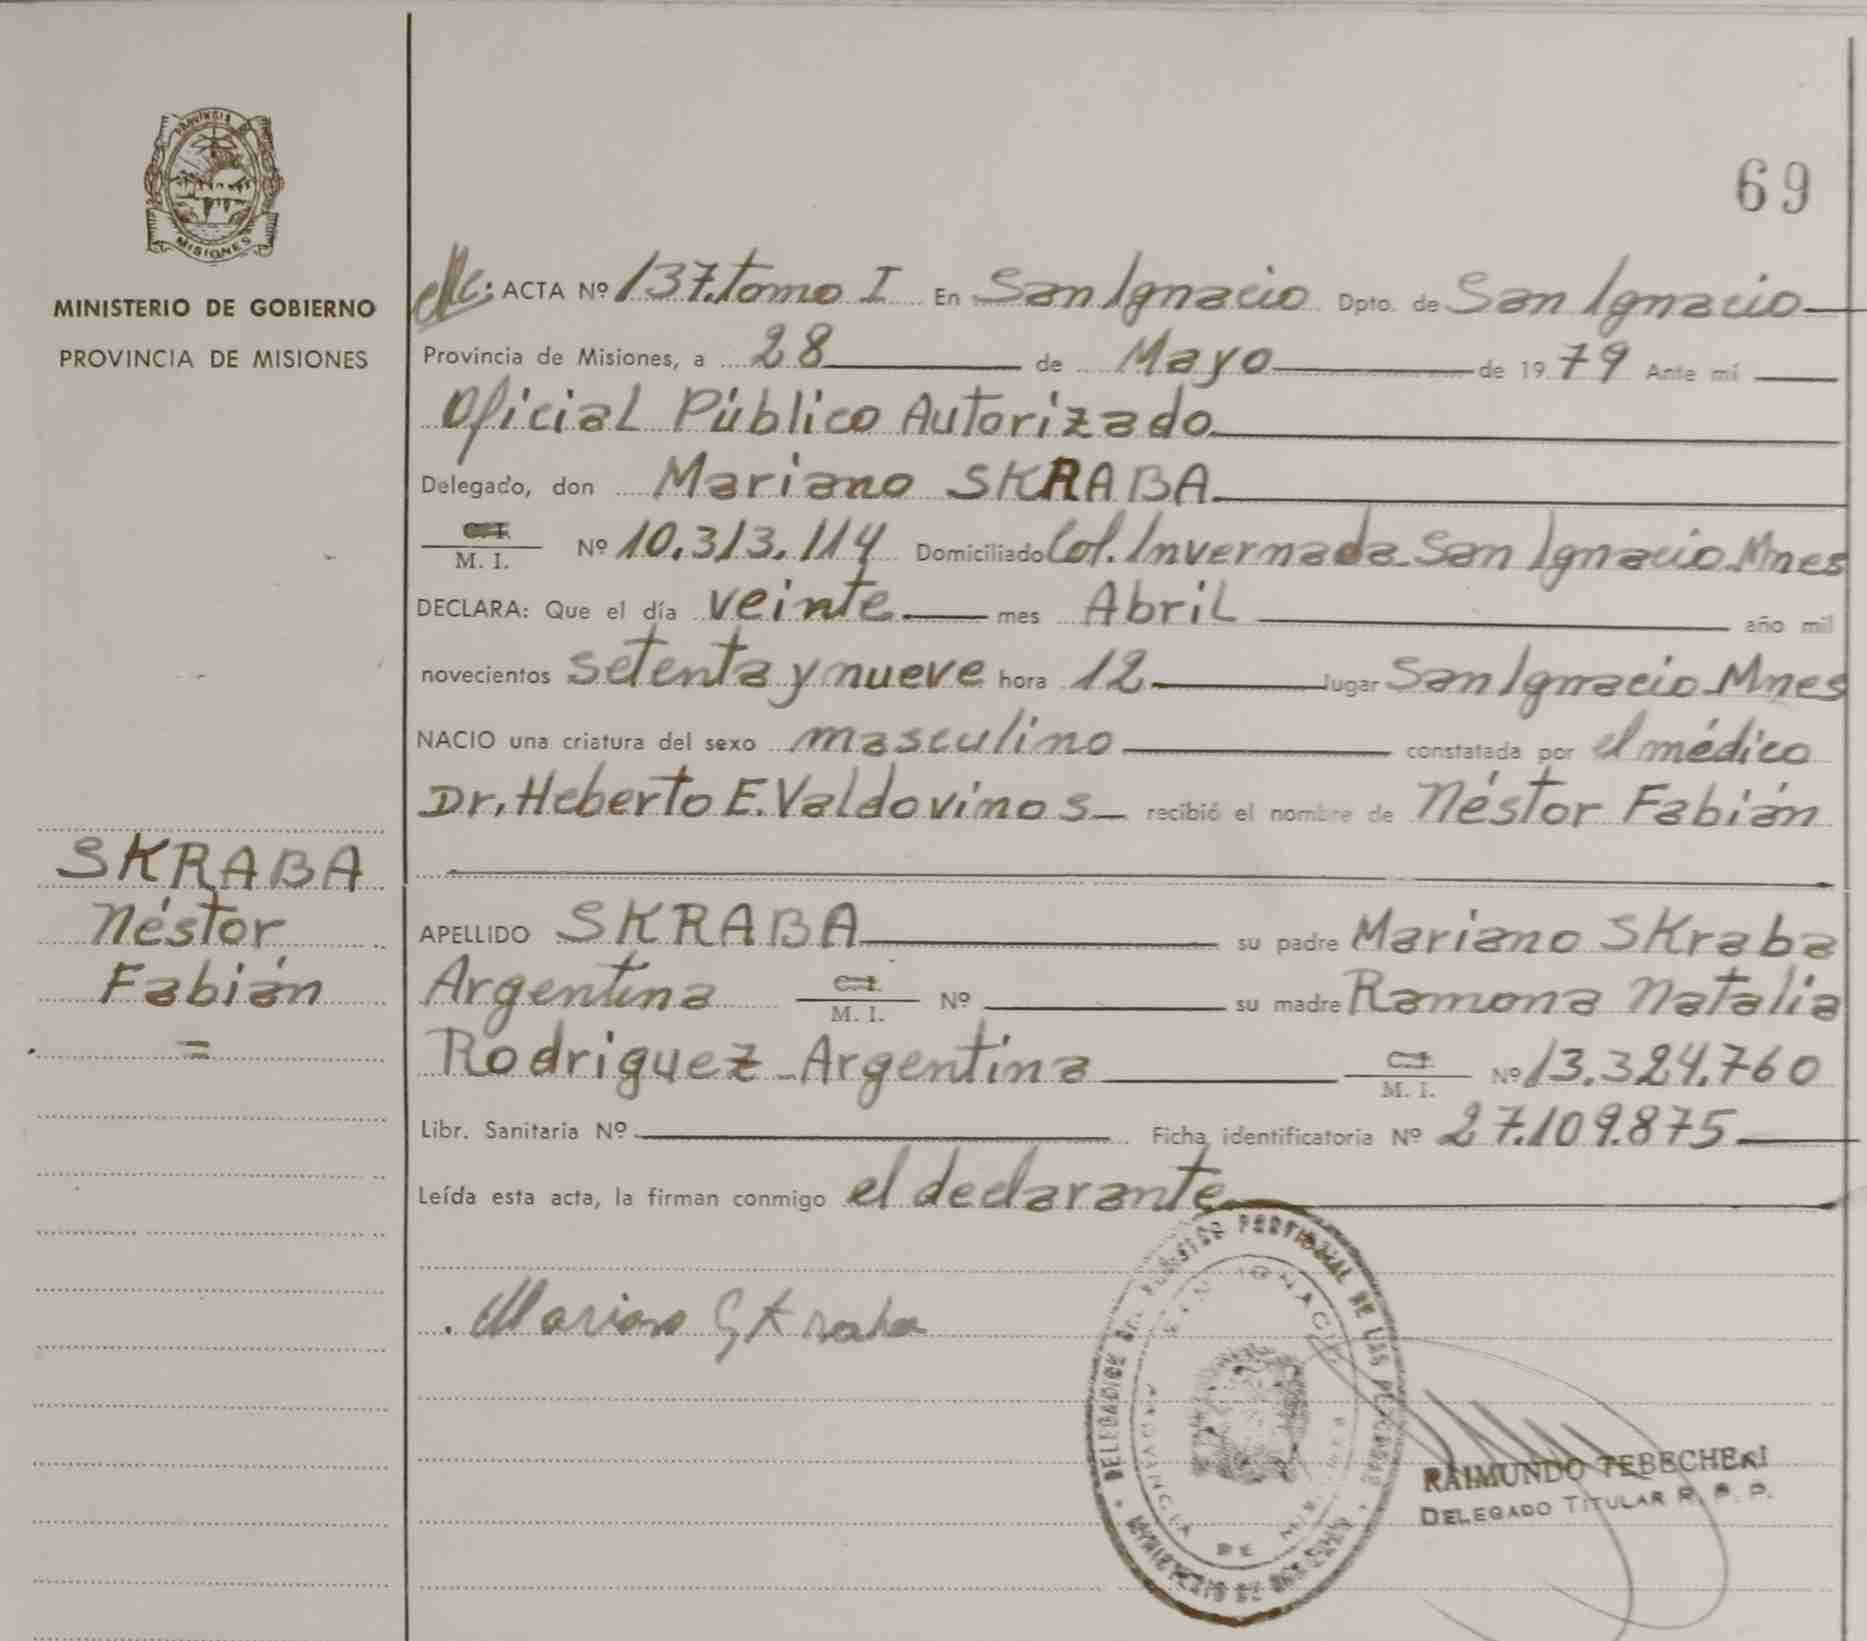 PROVINCIA DE
MISIONES
MINISTERIO DE GOBIERNO
PROVINCIA DE MISIONES
SKRABA
Néstor
Fabián
=
69
ACTA Nº 137. Tomo I En San Ignacio Dpto. de San Ignacio
Provincia de Misiones, a 28 de Mayo de 1979 Ante mí
Oficial Público Autorizado
Delegado, don Mariano SKRABA
C.I.
M. I. Nº 10.313.114 Domiciliado Col. Invernada San Ignacio Mnes
DECLARA: Que el día veinte mes Abril año mil
novecientos setenta y nueve hora 12 lugar San Ignacio Mnes
NACIO una criatura del sexo masculino constatada por el médico
Dr. Heberto E. Valdovinos recibió el nombre de Néstor Fabián
APELLIDO SKRABA su padre Mariano Skraba
Argentina C.I. M. I. Nº su madre Ramona Natalia
Rodriguez - Argentina C.I. M. I. Nº 13.324.760
Libr. Sanitaria Nº Ficha identificatoria Nº 27.109.875
Leída esta acta, la firman conmigo el declarante
Mariano Skraba
DE LAS PERSONAS
SAN IGNACIO
PROVINCIA DE MISIONES
RAIMUNDO TEBECHERI
DELEGADO TITULAR R. P. P.